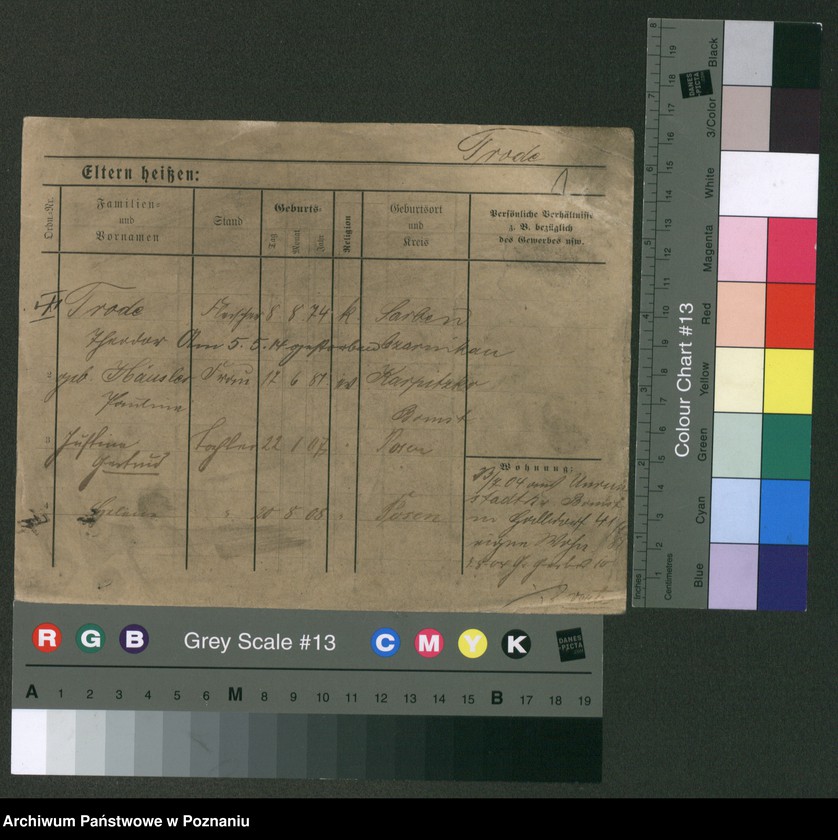 Trode
Eltern heißen:
Ordn.-Nr.
Familien- und Vornamen
Stand
Geburts-
Tag
Monat
Jahr
Religion
Geburtsort und Kreis
Persönliche Verhältnisse z. B. bezüglich des Gewerbes usw.
1 Trode Fleischer 8 8 74 k.
Theodor Am 5. 5. 14 gestorben Czarnikau
2 geb. Häusler Frau 17 6 81
Pauline Bomst
3 Justine Tochter 22 1 07 " Posen
Gertrud
4 Helene " 20 8 08 " Posen
Wohnung:
Bomst
Inches
Centimetres
Colour Chart #13
Blue
Cyan
Green
Yellow
Red
Magenta
White
3/Color
Black
DANES
PICTA
.com
R G B Grey Scale #13 C M Y K
DANES
PICTA
.com
A 1 2 3 4 5 6 M 8 9 10 11 12 13 14 15 B 17 18 19
Archiwum Państwowe w Poznaniu